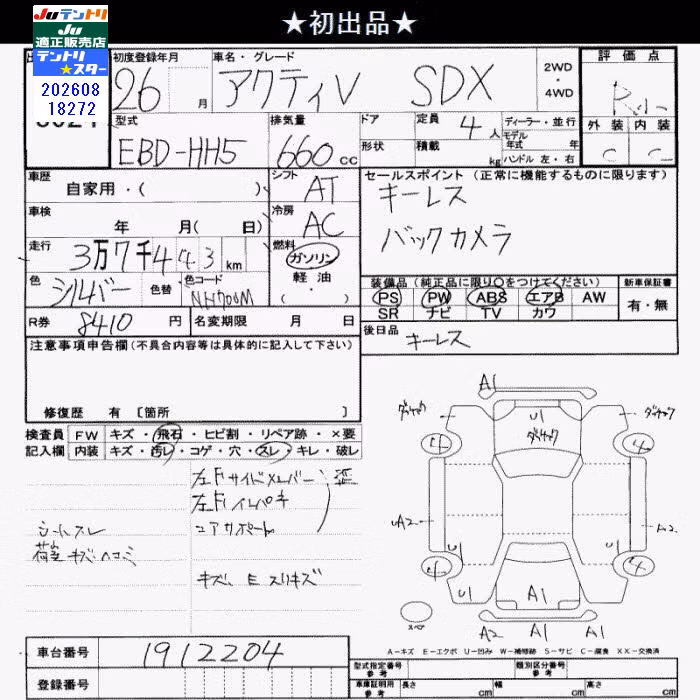 ★初出品★
Juテントリ
Ju
適正販売店
テントリ
★スター
202608
18272
初度登録年月
26 月
車名・グレード
アクティV SDX
2WD
・
4WD
評価点
外装 内装
C C
型式
EBD-HH5
排気量
660 cc
ドア
形状
定員 4 人
積載 kg
ディーラー・並行
モデル
年式 年
ハンドル 左・右
車歴
自家用・( )
シフト
AT
セールスポイント(正常に機能するものに限ります)
キーレス
バックカメラ
車検
年 月( 日)
冷房
AC
走行
3万7千443 km
燃料
ガソリン
・
軽油
・
( )
色
シルバー
色替
色コード
NH700M
装備品(純正品に限り○をつけてください)
PS PW ABS エアB AW
SR ナビ TV カワ
新車保証書
有・無
R券 8410 円
名変期限 月 日
後日品
キーレス
注意事項申告欄(不具合内容等は具体的に記入して下さい)
修復歴 有 [箇所 ]
検査員
記入欄
FW キズ・飛石・ヒビ割・リペア跡・×要
内装 キズ・汚レ・コゲ・穴・スレ・キレ・破レ
左Fサイドメンバー
左Fインパネ
コアサポート
シートスレ
荷室キズヘコミ
キズ、E スリキズ
A1
ダイヤック
U1
ダイヤック
ダイヤック
4
4
UA2
A2
U1
U1
4
4
U1
A1
A1
スペア
A2
A1
A1
A-キズ E-エクボ U-凹み W-補修跡 S-サビ C-腐食 XX-交換済
車台番号 1912204
登録番号
型式指定番号
参考
類別区分番号
参考
車庫証明用
参考
長さ cm
幅 cm
高さ cm